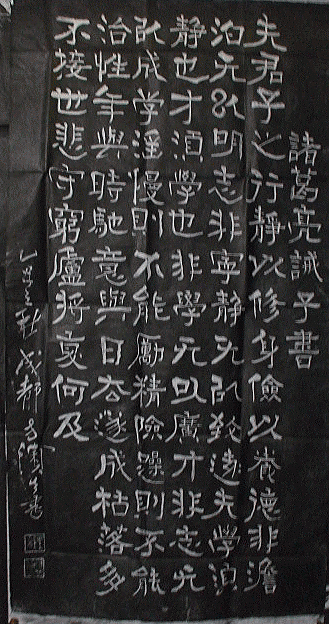 諸葛亮誡子書
夫君子之行静以修身儉以養德非澹
泊无以明志非寧静无以致遠夫學須
静也才須學也非學无以廣才非志无
以成学淫慢則不能勵精險躁則不能
治性年與時馳意與日去遂成枯落多
不接世悲守窮廬将复何及
秋成都書